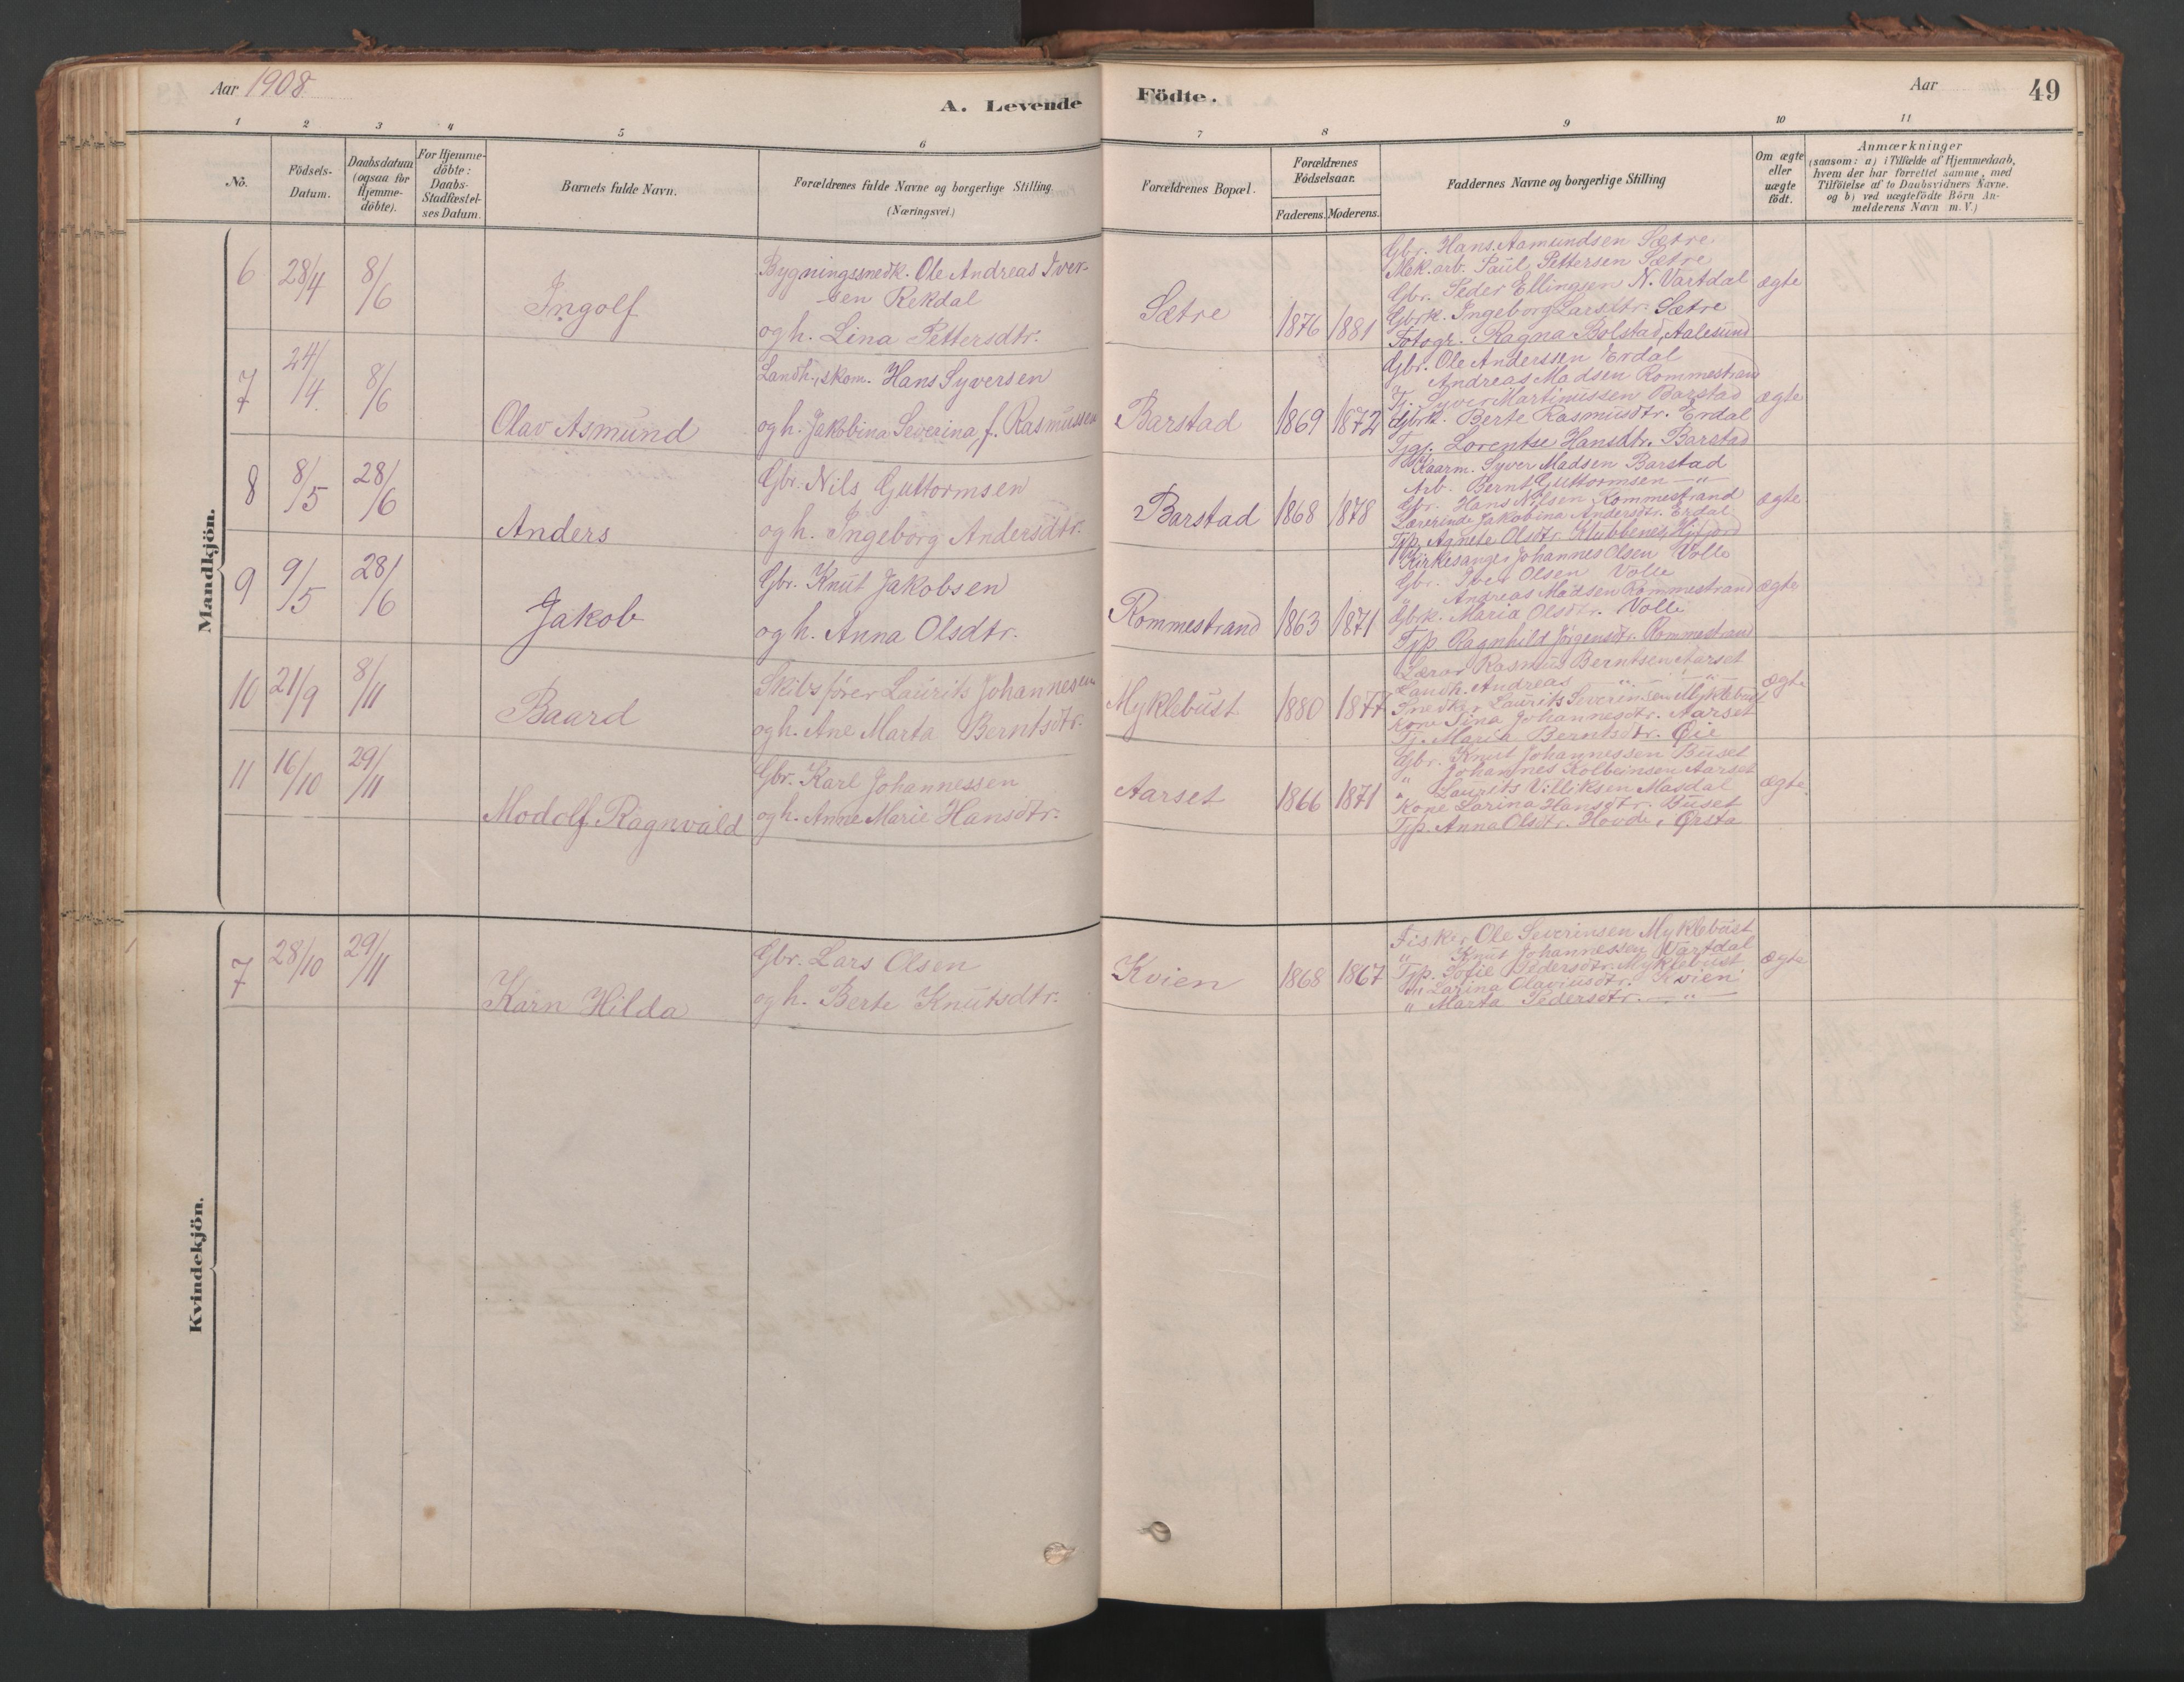 Aar 1908
A. Levende
Födte.
Aar
49
1 2 3 4 5 6 7 8 9 10 11
No.
Födsels-
Datum.
Daabsdatum
(ogsaa for
Hjemme-
döbte).
For Hjemme-
döbte:
Daabs-
Stadfæstel-
ses Datum.
Barnets fulde Navn.
Forældrenes fulde Navne og borgerlige Stilling.
(Næringsvei.)
Forældrenes Bopæl.
Forældrenes
Födselsaar.
Faderens. Moderens.
Faddernes Navne og borgerlige Stilling
Om ægte
eller
uægte
födt.
Anmærkninger
(saasom: a) i Tilfælde af Hjemmedaab,
hvem der har forrettet samme, med
Tilföielse af to Daabsvidners Navne.
og b) ved uægtefödte Börn An-
melderens Navn m. V.)
Mandkjön.
6 28/4 8/6
Ingolf
Bygningssnedk. Ole Andreas Iver-
sen Rekdal
og h. Lina Pettersdtr.
Sætre 1876 1881
Gbr. Hans Aamundsen Sætre
Mek. arb. Paul Pettersen Sætre
Gbr. Peder Ellingsen N. Vartdal
Gbrk. Ingeborg Larsdtr. Sætre
Fotogr. Ragna Bolstad, Aalesund
ægte
7 24/4 8/6
Olav Asmund
Landh., skom. Hans Syversen
og h. Jakobina Severina f. Rasmussen
Barstad 1869 1872
Gbr. Ole Anderssen Erdal
Andreas Madsen Rommestrand
Tj. Syver Martinussen Barstad
Gbrk. Berte Rasmusdtr. Erdal
Tjg. Lorentse Hansdtr. Barstad
ægte
8 8/5 28/6
Anders
Gbr. Nils Guttormsen
og h. Ingeborg Andersdtr.
Barstad 1868 1878
Kaarm. Syver Madsen Barstad
Arb. Bernt Guttormsen — " —
Gbr. Hans Nilsen Rommestrand
Lærerinde Jakobina Andersdtr. Erdal
Tjp. Agnete Olsdtr. Klubbenes, Hjfjord
ægte
9 9/5 28/6
Jakob
Gbr. Knut Jakobsen
og h. Anna Olsdtr.
Rommestrand 1863 1871
Kirkesanger Johannes Olsen Volle
Gbr. Iver Olsen Volle
" Andreas Madsen Rommestrand
Gbrk. Maria Olsdtr. Volle
Tjp. Ragnhild Jörgensdtr. Rommestrand
ægte
10 21/9 8/11
Baard
Skibsfører Laurits Johannesen
og h. Ane Marta Berntsdtr.
Myklebust 1880 1877
Lærar Rasmus Berntsen Aarset
Landh. Andreas — " — " —
Snedker Laurits Severinsen Myklebust
Kone Sina Johannesdtr. Aarset
Tj. Maria Berntsdtr. Øie
ægte
11 16/10 29/11
Modolf Ragnvald
Gbr. Karl Johannessen
og h. Anne Marie Hansdtr.
Aarset 1866 1871
Gbr. Knut Johannessen Buset
" Johannes Kolbeinsen Aarset
" Laurits Villiksen Masdal
Kone Larina Hansdtr. Buset
Tjp. Anna Olsdtr. Hovde, Ørsta
ægte
Kvindekjön.
7 28/10 29/11
Karn Hilda
Gbr. Lars Olsen
og h. Berte Knutsdtr.
Kvien 1868 1867
Fisker Ole Severinsen Myklebust
" Knut Johannessen Vartdal
Tjp. Sofie Pedersdtr. Myklebust
" Larina Olaviusdtr. Kvien
" Marta Pedersdtr. — " —
ægte